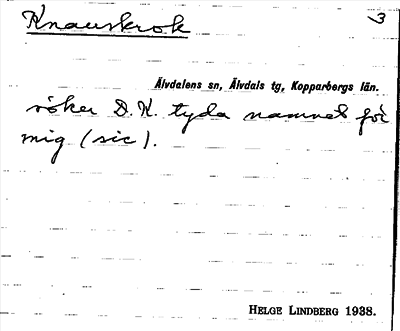 Knauskrok
3
Älvdalens sn, Älvdals tg, Kopparbergs län.
söker D. K. tyda namnet för
mig (sic).
HELGE LINDBERG 1938.